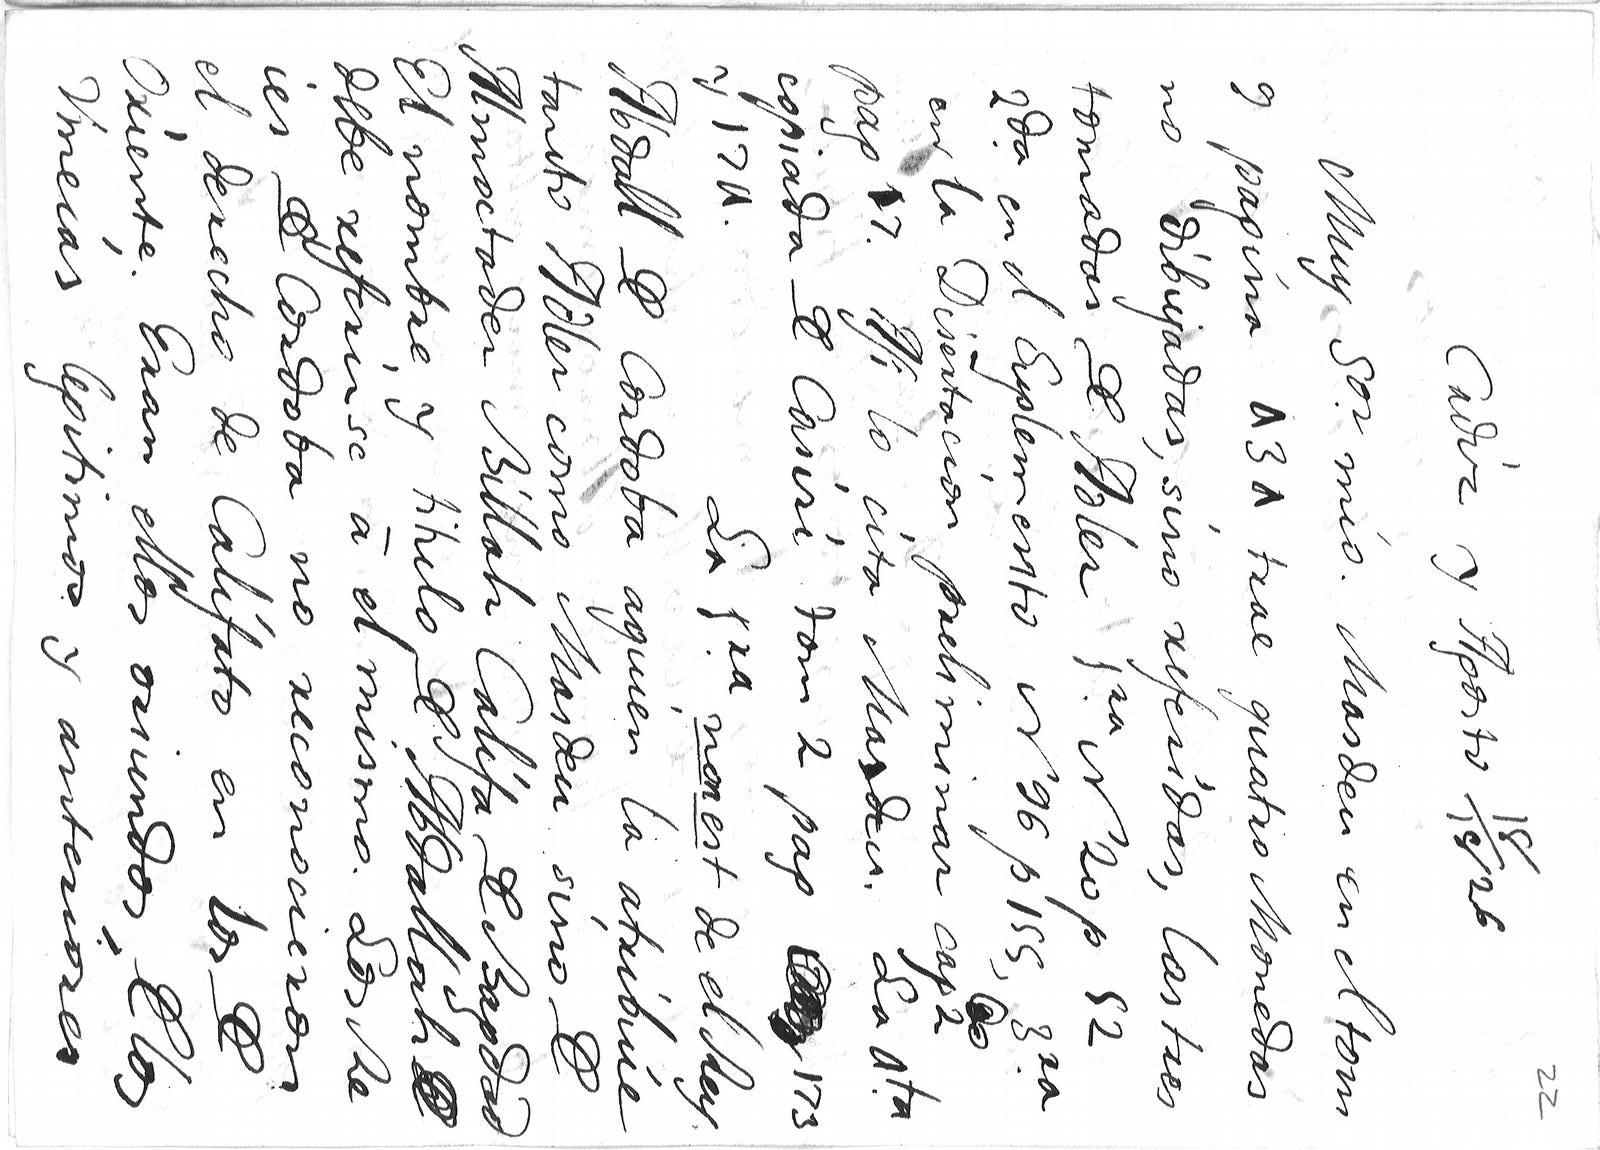 22
Cadiz y Agosto 18/18/26
Muy Sor mio. Masdeu en el tom
9 pagina 131 trae quatro Monedas
no dibujadas, sino referidas, las tres
tomadas de Adler 1.ra N 20 p 52
2da en el Suplemento N 96 p 155, 3ra
en la Disertacion preliminar cap 2
pag 17. Asi lo cita Masdeu. La 4ta
copiada de Casiri tom 2 pag 173
y 174.
La 1.ra no est de el Rey
Abdall de Cordoba aquien la atribuie
tanto Adler como Masdeu sino de
Almoctader Billah Califa de Bagdad
El nombre, y titulo de Abdallah
debe referirse à el mismo. Los Re
ies de Cordoba no reconocieron
el derecho de Califato en los de
Oriente. Eran ellos oriundos de los
Vmeias legitimos y anteriores